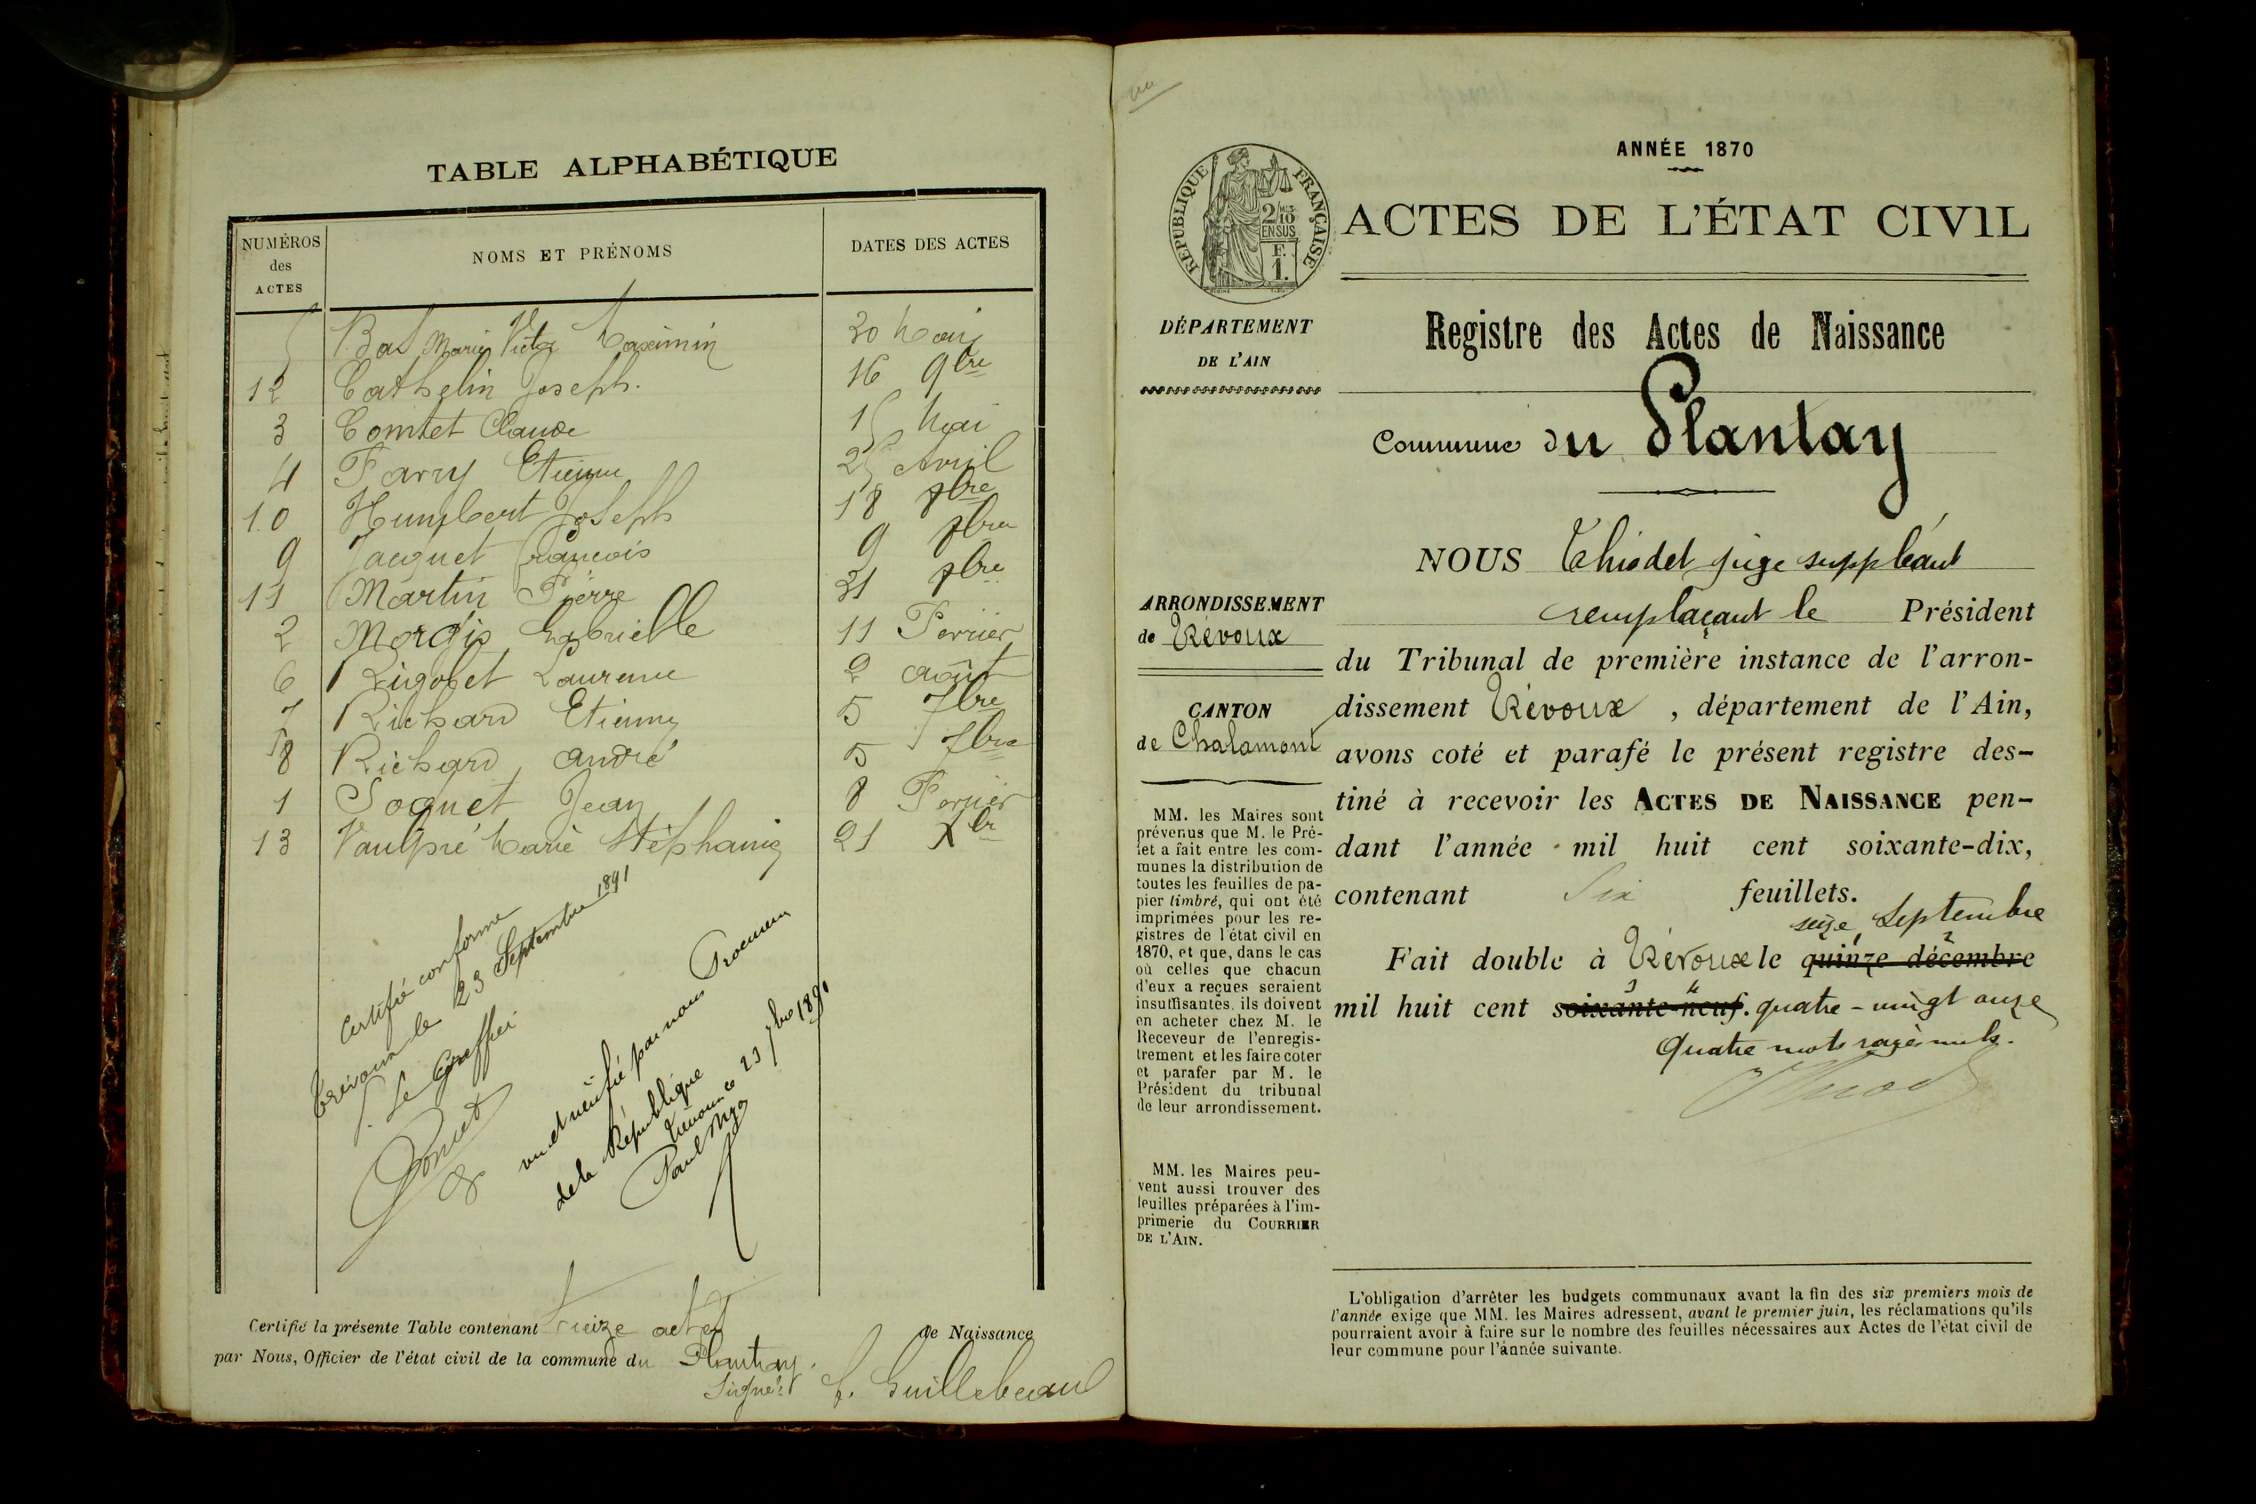 TABLE ALPHABÉTIQUE
NUMÉROS des ACTES
NOMS ET PRÉNOMS
DATES DES ACTES
5 Bal Marie Victor Maximin 30 Mai
12 Cathelin Joseph. 16 9bre
3 Comtet Claude 15 Mai
4 Farry Etienne 25 Avril
10 Humbert Joseph 18 8bre
9 Jacquet François 9 8bre
11 Martin Pierre 31 8bre
2 Gabrielle 11 Février
6 Rigolet Laurence 2 août
7 Richard Etienne 5 7bre
8 Richard André 5 7bre
1 Soquet Jean 8 Février
13 Vaulpré Marie Stéphanie 21 Xbr
Certifié conforme
Trévoux le 23 Septembre 1891
Le Greffier
vu et vérifié par nous Procureur
de la République
Trévoux ce 23 7bre 1891
Certifié la présente Table contenant Treize actes de Naissance
par Nous, Officier de l'état civil de la commune du Plantay.
Signé: Guillebeau
ANNÉE 1870
RÉPUBLIQUE FRANÇAISE
2/10 EN SUS
F. 1.
ACTES DE L'ÉTAT CIVIL
DÉPARTEMENT
DE L'AIN
Registre des Actes de Naissance
Commune du Plantay
NOUS Thiodet juge suppléant
remplaçant le Président
ARRONDISSEMENT
de Trévoux
du Tribunal de première instance de l'arron-
dissement Trévoux, département de l'Ain,
CANTON
de Chalamont
avons coté et parafé le présent registre des-
tiné à recevoir les ACTES DE NAISSANCE pen-
dant l'année mil huit cent soixante-dix,
contenant Six feuillets.
seize Septembre
Fait double à Trévoux le quinze décembre
mil huit cent soixante-neuf. quatre-vingt onze
Quatre mots rayés nuls.
MM. les Maires sont
prévenus que M. le Pré-
fet a fait entre les com-
munes la distribution de
toutes les feuilles de pa-
pier timbré, qui ont été
imprimées pour les re-
gistres de l'état civil en
1870, et que, dans le cas
où celles que chacun
d'eux a reçues seraient
insuffisantes, ils doivent
en acheter chez M. le
Receveur de l'enregis-
trement et les faire coter
et parafer par M. le
Président du tribunal
de leur arrondissement.
MM. les Maires peu-
vent aussi trouver des
feuilles préparées à l'im-
primerie du COURRIER
DE L'AIN.
L'obligation d'arrêter les budgets communaux avant la fin des six premiers mois de
l'année exige que MM. les Maires adressent, avant le premier juin, les réclamations qu'ils
pourraient avoir à faire sur le nombre des feuilles nécessaires aux Actes de l'état civil de
leur commune pour l'année suivante.